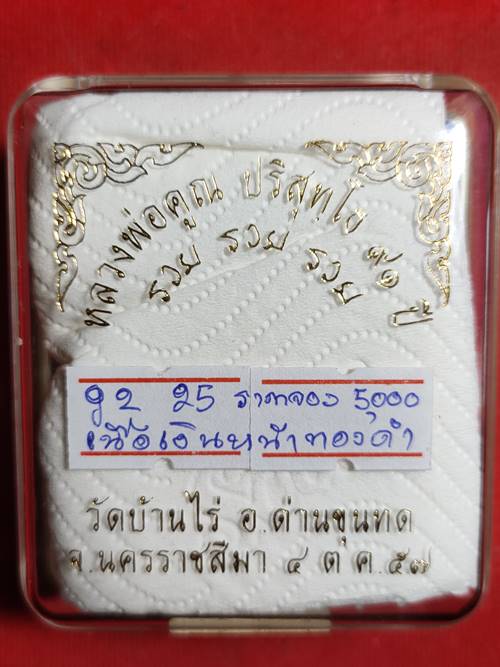 หลวงพ่อคูณ ปริสุทฺโธ ๙๑ ปี
รวย รวย รวย
92 25 ราคาจอง 5,000
เนื้อเงินหน้าทองคำ
วัดบ้านไร่ อ.ด่านขุนทด
จ.นครราชสีมา ๔ ต ค.๕๗